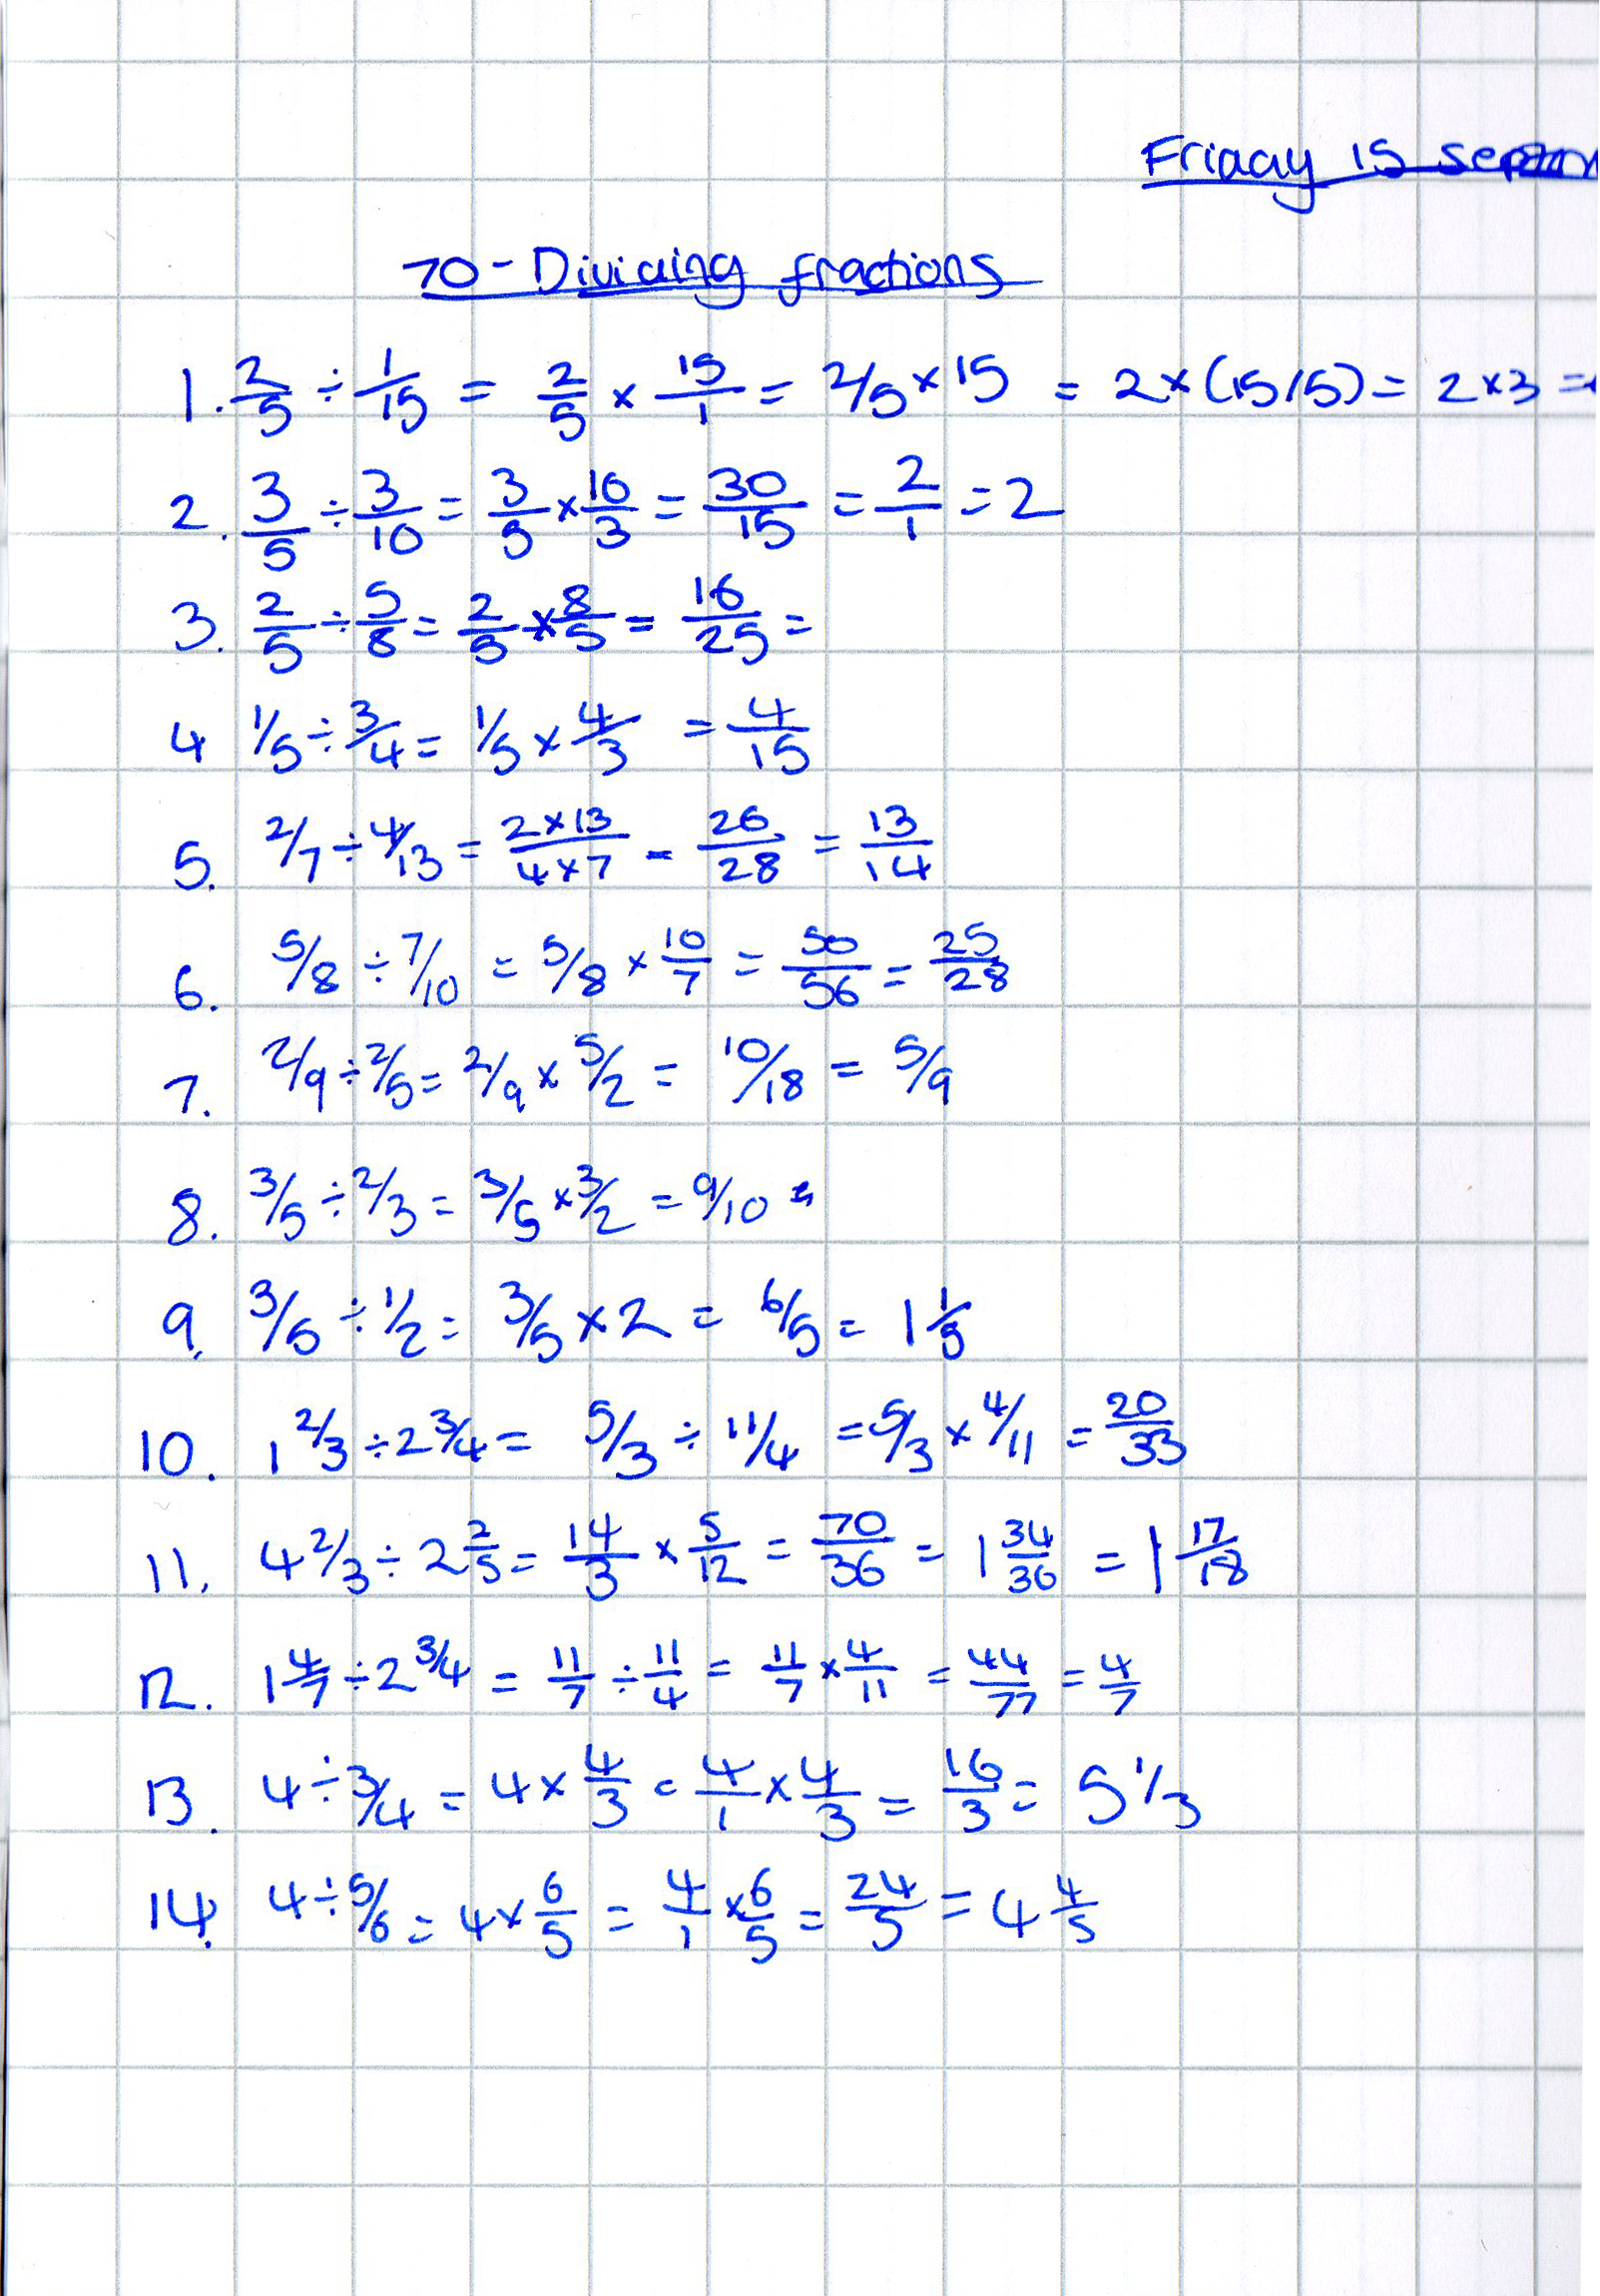 Friday 15 sep
70 - Dividing fractions
1. 2/5 ÷ 1/15 = 2/5 × 15/1 = 2/5 × 15 = 2 × (15/5) = 2 × 3 =
2. 3/5 ÷ 3/10 = 3/5 × 10/3 = 30/15 = 2/1 = 2
3. 2/5 ÷ 5/8 = 2/5 × 8/5 = 16/25 =
4 1/5 ÷ 3/4 = 1/5 × 4/3 = 4/15
5. 2/7 ÷ 4/13 = 2×13/4×7 = 26/28 = 13/14
6. 5/8 ÷ 7/10 = 5/8 × 10/7 = 50/56 = 25/28
7. 2/9 ÷ 2/5 = 2/9 × 5/2 = 10/18 = 5/9
8. 3/5 ÷ 2/3 = 3/5 × 3/2 = 9/10
9. 3/5 ÷ 1/2 = 3/5 × 2 = 6/5 = 1 1/5
10. 1 2/3 ÷ 2 3/4 = 5/3 ÷ 11/4 = 5/3 × 4/11 = 20/33
11. 4 2/3 ÷ 2 2/5 = 14/3 × 5/12 = 70/36 = 1 34/36 = 1 17/18
12. 1 4/7 ÷ 2 3/4 = 11/7 ÷ 11/4 = 11/7 × 4/11 = 44/77 = 4/7
13. 4 ÷ 3/4 = 4 × 4/3 = 4/1 × 4/3 = 16/3 = 5 1/3
14. 4 ÷ 5/6 = 4 × 6/5 = 4/1 × 6/5 = 24/5 = 4 4/5